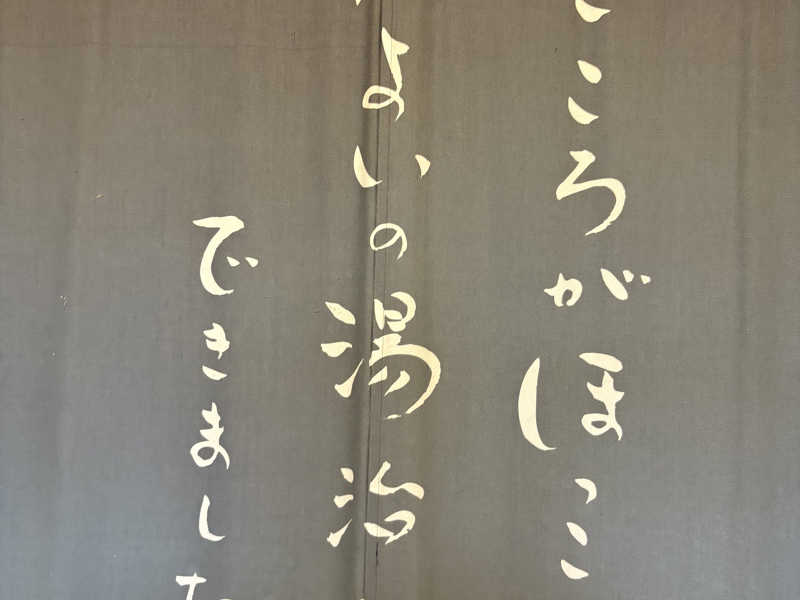 ころがほっこ
よいの湯治
できました